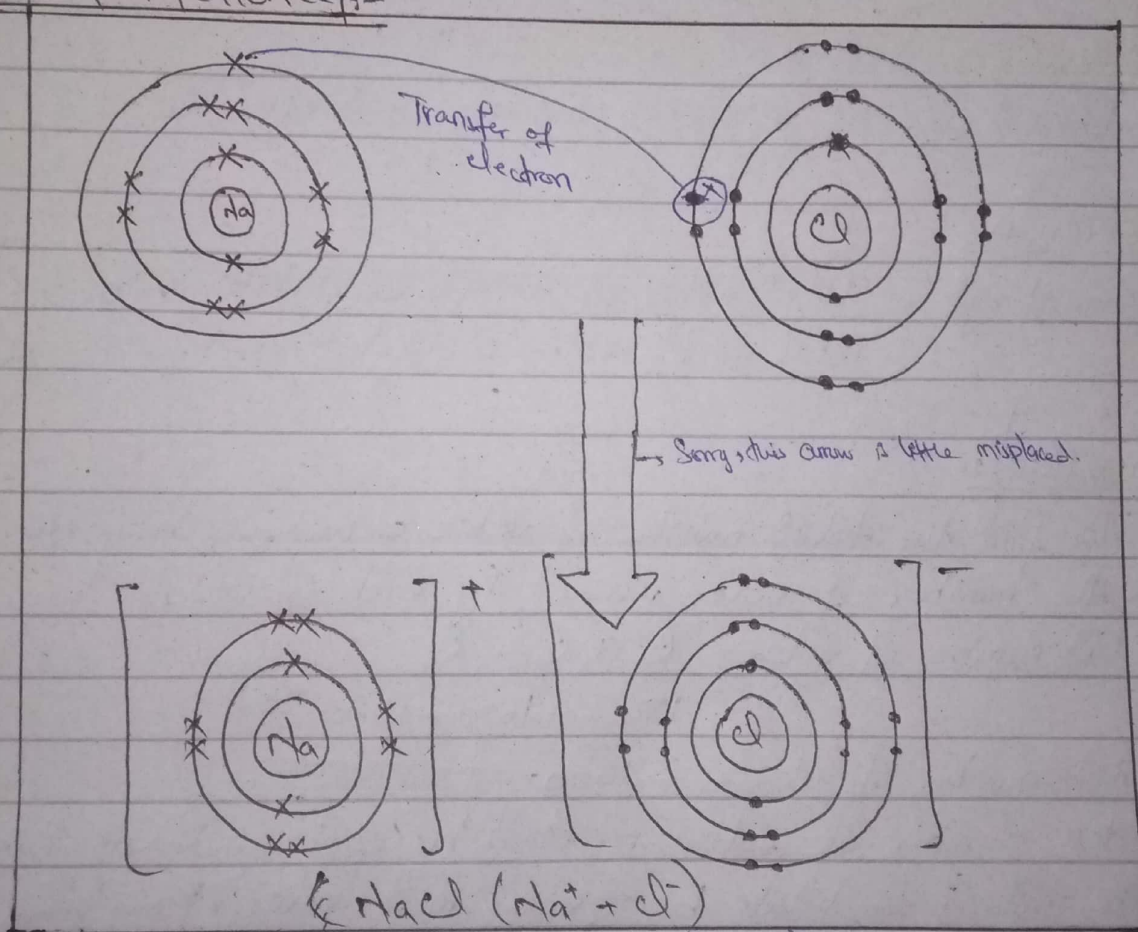 Transfer of
electron
Na
Cl
Sorry, this arrow is little misplaced.
+
-
Na
Cl
NaCl (Na⁺ + Cl⁻)